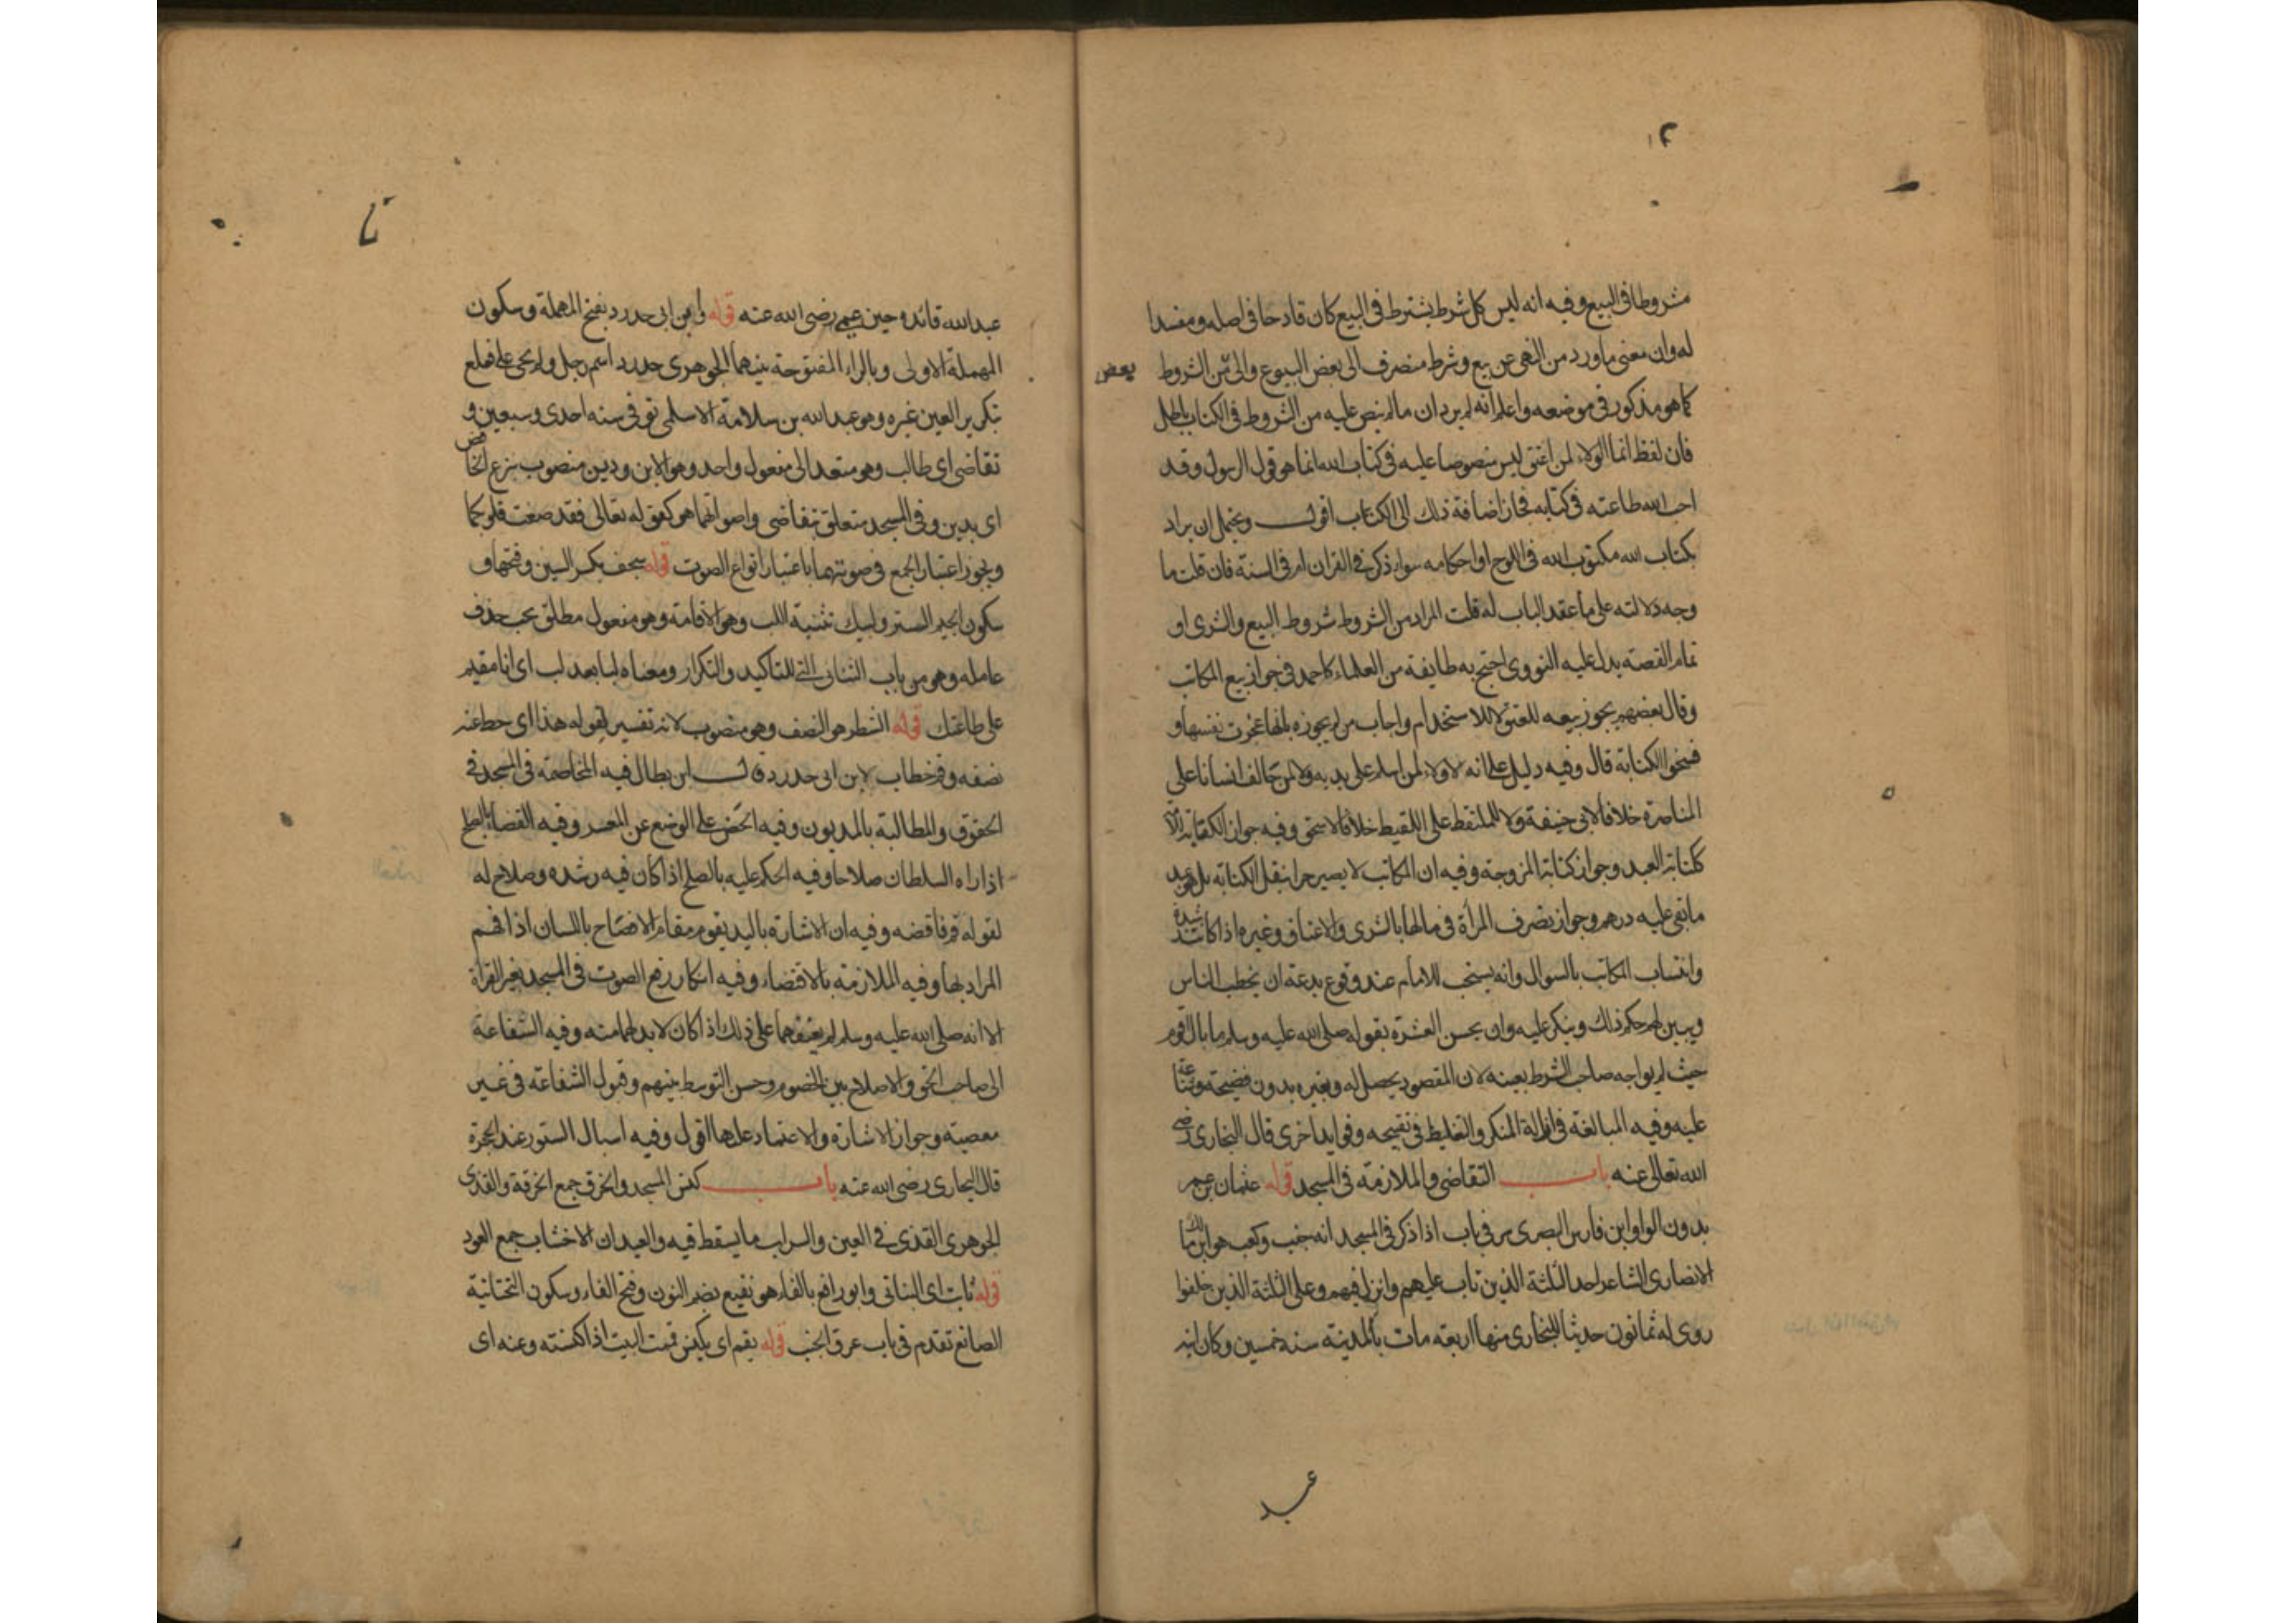 ١٢
مشروطا فى البيع وفيه انه ليس كل شرط يشترط فى البيع كان قادحا فى اصله ومفسدا
له وان معنى ماورد من النهى عن بيع وشرط منصرف الى بعض البيوع والى من الشروط
بعض
كما هو مذكور فى موضعه واعلم انه لم يرد ان مالم ينص عليه من الشروط فى الكتاب باطل
فان لفظ انما الولاء لمن اعتق ليس منصوصا عليه فى كتاب الله انما هو قول الرسول وقد
اجب الله طاعته فى كتابه فجاز اضافة ذلك الى الكتاب اقول ويحتمل ان يراد
بكتاب الله مكتوب الله فى اللوح او احكامه سواء ذكر فى القران او فى السنة فان قلت ما
وجه دلالته على ما عقد الباب له قلت المراد من الشروط شروط البيع والشرى او
تمام القصة يدل عليه النووى احتج به طايفة من العلماء كاحمد فى جواز بيع المكاتب
وقال بعضهم يجوز بيعه للعتق لا للاستخدام واجاب من لم يجوزه بانها عجزت نفسها و
فسخوا الكتابة قال وفيه دليل على انه لا ولاء لمن اسلم على يديه ولا لمن حالف انسانا على
المناصرة خلافا لابى حنيفة ولا للملتقط على اللقيط خلافا لاسحق وفيه جواز الكتابة
كتابة العبد وجواز كتابة المزوجة وفيه ان المكاتب لا يصير حرا بنفس الكتابة بل هو عبد
ما بقى عليه درهم وجواز تصرف المرأة فى مالها بالشرى والاعتاق وغيره اذا كانت رشيدة
واكتساب المكاتب بالسوال وانه يستحب للامام عند وقوع بدعة ان يخطب الناس
ويبين لهم حكم ذلك وينكر عليه وان يحسن العشرة بقوله صلى الله عليه وسلم ما بال اقوام
حيث لم يواجه صاحب الشرط بعينه لان المقصود يحصل له وبغيره بدون فضيحة وشناعة
عليه وفيه المبالغة فى ازالة المنكر والتغليظ فى تقبيحه وفوايد اخرى قال البخارى رضى
الله تعالى عنه باب التقاضى والملازمة فى المسجد قوله عثمان بن عمر
بدون الواو ابن فارس البصرى مر فى باب اذا ذكر فى المسجد انه جنب وكعب هو ابن مالك
الانصارى الشاعر احد الثلثة الذين تاب عليهم وانزل فيهم وعلى الثلثة الذين خلفوا
روى له ثمانون حديثا للبخارى منها اربعة مات بالمدينة سنة خمسين وكان ابنه
عبد
عبد الله قائده حين عمى رضى الله عنه قوله وابن ابى حدرد بفتح المهملة وسكون
المهملة الاولى وبالراء المفتوحة بينهما الجوهرى حدرد اسم رجل ولم يجى على فعلع
بتكرير العين غيره وهو عبد الله بن سلامة الاسلمى توفى سنة احدى وسبعين و
تقاضى اى طالب وهو متعد الى مفعول واحد وهو الابن ودين منصوب بنزع الخافض
اى بدين وفى المسجد متعلق بتقاضى واصواتهما هو كقوله تعالى فقد صغت قلوبكما
ويجوز اعتبار الجمع فى صوتيهما باعتبار انواع الصوت قوله سجف بكسر السين وفتحها و
سكون الجيم الستر ولبيك تثنية اللب وهو الاقامة وهو مفعول مطلق يجب حذف
عامله وهو من باب الثنانى التى للتاكيد والتكرار ومعناه لبا بعد لب اى انا مقيم
على طاعتك قوله الشطر هو النصف وهو منصوب لانه تفسير لقوله هذا اى حط عنه
نصفه وقم خطاب لابن ابى حدرد قال ابن بطال فيه المخاصمة فى المسجد فى
الحقوق والمطالبة بالمديون وفيه الحض على الوضع عن المعسر وفيه القضا بالصلح
اذا راه السلطان صلاحا وفيه الحكم عليه بالصلح اذا كان فيه رشده وصلاح له
لقوله قم فاقضه وفيه ان الاشارة باليد يقوم مقام الافصاح باللسان اذا فهم
المراد بها وفيه الملازمة بالاقتضاء وفيه انكار رفع الصوت فى المسجد بغير القرأة
الا انه صلى الله عليه وسلم لم يعنفهما على ذلك اذا كان لا بد لهما منه وفيه الشفاعة
الى صاحب الحق والاصلاح بين الخصوم وحسن التوسط بينهم وقبول الشفاعة فى غير
معصية وجواز الاشارة والاعتماد عليها اقول وفيه اسبال الستور عند الحجرة
قال البخارى رضى الله عنه باب كنس المسجد والخرق جمع الخرقة والقذى
الجوهرى القذى فى العين والسراب ما يسقط فيه والعيدان الاخشاب جمع العود
قوله ثابت اى البنانى وابو رافع بالفاء هو نفيع بضم النون وفتح الفاء وسكون التحتانية
الصائغ تقدم فى باب عرق الجنب قوله يقم اى يكنس قممت البيت اذا كنسته وعنه اى